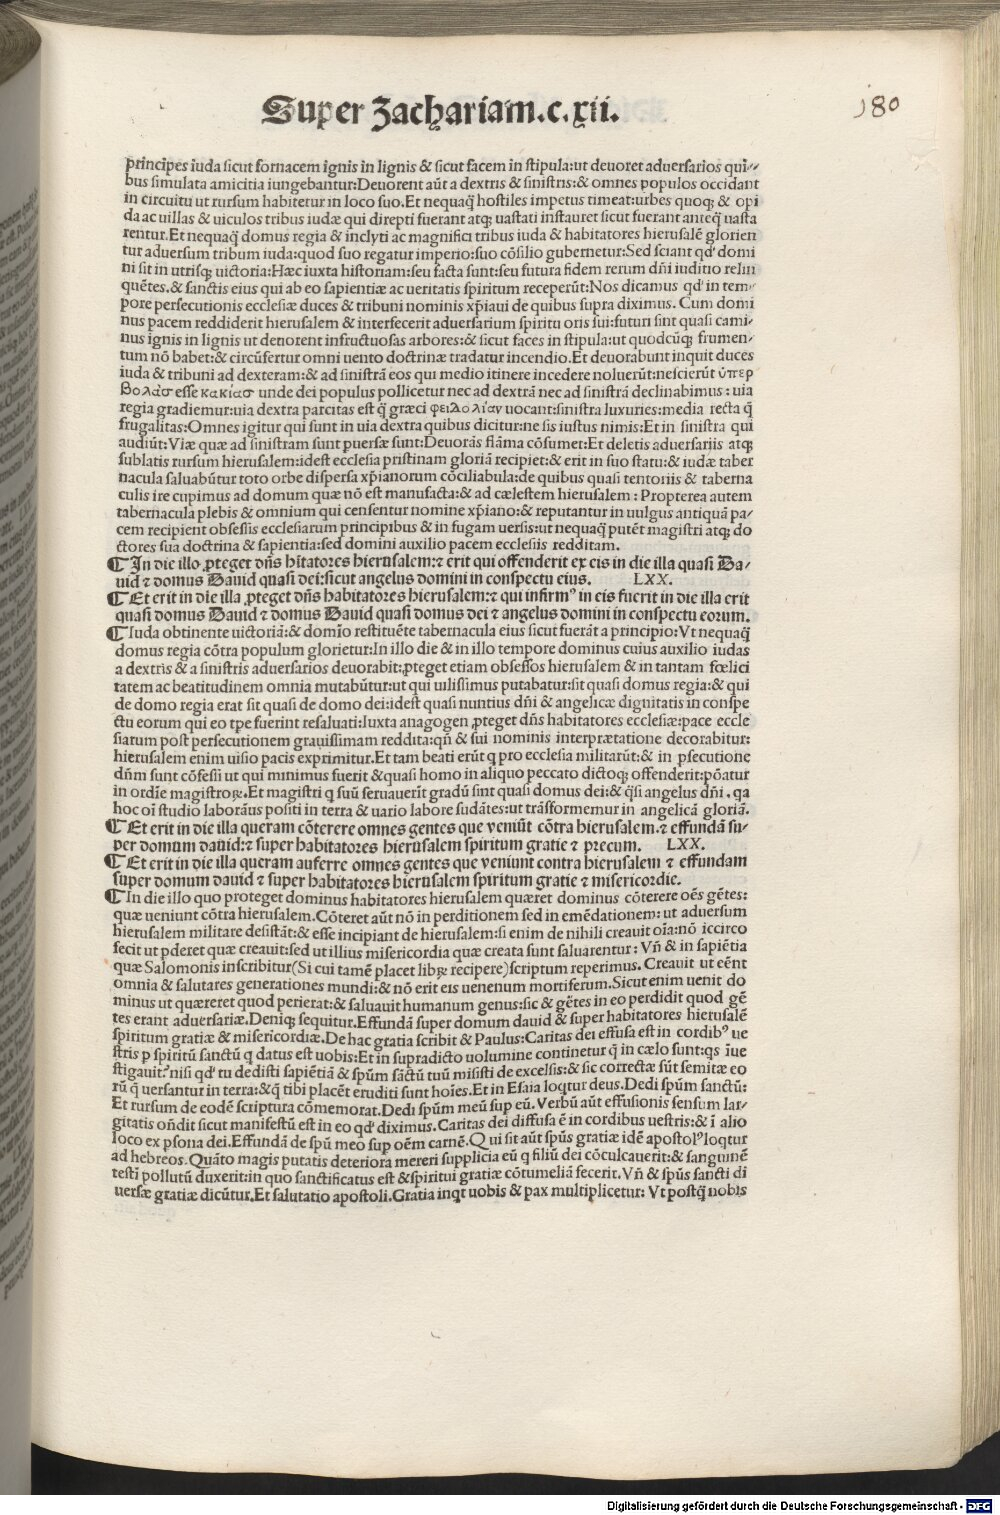 Super Zachariam.c.xii.
180
principes iuda sicut fornacem ignis in lignis & sicut facem in stipula:ut deuoret aduersarios qui-
bus simulata amicitia iungebantur:Deuorent aũt a dextris & sinistris:& omnes populos occidant
in circuitu ut rursum habitetur in loco suo.Et nequaq̃ hostiles impetus timeat:urbes quoq; & opi
da ac uillas & uiculos tribus iudæ qui direpti fuerant atq; uastati instauret sicut fuerant anteq̃ uasta
rentur.Et nequaq̃ domus regia & inclyti ac magnifici tribus iuda & habitatores hierusalẽ glorien
tur aduersum tribum iuda:quod suo regatur imperio:suo cõsilio gubernetur:Sed sciant qd' domi
ni sit in utrisq; uictoria:Hæc iuxta historiam:seu facta sunt:seu futura fidem rerum dñi iuditio relin
quẽtes.& sanctis eius qui ab eo sapientiæ ac ueritatis spiritum receperũt:Nos dicamus qd' in tem-
pore persecutionis ecclesiæ duces & tribuni nominis xp̃iaui de quibus supra diximus. Cum domi
nus pacem reddiderit hierusalem & interfecerit aduersarium spiritu oris sui:futuri sint quasi cami-
nus ignis in lignis ut denorent infructuosas arbores:& sicut faces in stipula:ut quodcũq; frumen-
tum nõ babet:& circũfertur omni uento doctrinæ tradatur incendio.Et deuorabunt inquit duces
iuda & tribuni ad dexteram:& ad sinistrã eos qui medio itinere incedere noluerũt:nescierũt ὑπερ
βολὰσ esse κακίασ unde dei populus pollicetur nec ad dextrã nec ad sinistrã declinabimus : uia
regia gradiemur:uia dextra parcitas est q̃ græci φειδολίαν uocant:sinistra luxuries:media recta q̃
frugalitas:Omnes igitur qui sunt in uia dextra quibus dicitur:ne sis iustus nimis:Et in sinistra qui
audiũt:Viæ quæ ad sinistram sunt puersæ sunt:Deuorãs flãma cõsumet:Et deletis aduersariis atq;
sublatis rursum hierusalem:idest ecclesia pristinam gloriã recipiet:& erit in suo statu:& iudæ taber
nacula saluabũtur toto orbe dispersa xp̃ianorum cõciliabula:de quibus quasi tentoriis & taberna
culis ire cupimus ad domum quæ nõ est manufacta:& ad cælestem hierusalem : Propterea autem
tabernacula plebis & omnium qui censentur nomine xp̃iano:& reputantur in uulgus antiquã pa-
cem recipient obsessis ecclesiarum principibus & in fugam uersis:ut nequaq̃ putẽt magistri atq; do
ctores sua doctrina & sapientia:sed domini auxilio pacem ecclesiis redditam.
¶ In die illo ꝓteget dñs hitatores hierusalem:⁊ erit qui offenderit ex eis in die illa quasi Da-
uid ⁊ domus David quasi dei:sicut angelus domini in conspectu eius. LXX.
¶ Et erit in die illa ꝓteget dñs habitatores hierusalem:⁊ qui infirmꝰ in eis fuerit in die illa erit
quasi domus David ⁊ domus David quasi domus dei ⁊ angelus domini in conspectu eorum.
¶ Iuda obtinente uictoriã:& domĩo restituẽte tabernacula eius sicut fuerãt a principio:Vt nequaq̃
domus regia cõtra populum glorietur:In illo die & in illo tempore dominus cuius auxilio iudas
a dextris & a sinistris aduersarios deuorabit:ꝓteget etiam obsessos hierusalem & in tantam fœlici
tatem ac beatitudinem omnia mutabũtur:ut qui uilissimus putabatur:sit quasi domus regia:& qui
de domo regia erat sit quasi de domo dei:idest quasi nuntius dñi & angelicæ dignitatis in conspe
ctu eorum qui eo tp̃e fuerint resaluati:Iuxta anagogen ꝓteget dñs habitatores ecclesiæ:pace eccle
siarum post persecutionem grauissimam reddita:qñ & sui nominis interprætatione decorabitur:
hierusalem enim uisio pacis exprimitur.Et tam beati erũt q pro ecclesia militarũt:& in psecutione
dñm sunt cõfessi ut qui minimus fuerit &quasi homo in aliquo peccato dictoq; offenderit:põatur
in ordĩe magistroꝝ.Et magistri q suũ seruauerũt gradũ sint quasi domus dei:& q̃si angelus dñi . qa
hoc oĩ studio laborãus positi in terra & uario labore sudãtes:ut trãsformemur in angelicã gloriã.
¶ Et erit in die illa queram cõterere omnes gentes que veniũt cõtra hierusalem.⁊ effundã su-
per domum dauid:⁊ super habitatores hierusalem spiritum gratie ⁊ precum. LXX.
¶ Et erit in die illa queram auferre omnes gentes que veniunt contra hierusalem ⁊ effundam
super domum dauid ⁊ super habitatores hierusalem spiritum gratie ⁊ misericordie.
¶ In die illo quo proteget dominus habitatores hierusalem quæret dominus cõterere oẽs gẽtes:
quæ ueniunt cõtra hierusalem.Cõteret aũt nõ in perditionem sed in emẽdationem: ut aduersum
hierusalem militare desistãt:& esse incipiant de hierusalem:si enim de nihili creauit oia:nõ iccirco
fecit ut pderet quæ creauit:sed ut illius misericordia quæ creata sunt saluarentur : Vñ & in sapiẽtia
quæ Salomonis inscribitur(Si cui tamẽ placet libꝝ recipere)scriptum reperimus. Creauit ut eẽnt
omnia & salutares generationes mundi:& nõ erit eis uenenum mortiferum.Sicut enim uenit do
minus ut quæreret quod perierat:& saluauit humanum genus:sic & gẽtes in eo perdidit quod gẽ
tes erant aduersariæ.Deniq; sequitur.Effundã super domum dauid & super habitatores hierusalẽ
spiritum gratiæ & misericordiæ.De hac gratia scribit & Paulus:Caritas dei effusa est in cordibꝰ ue
stris p spiritũ sanctũ q datus est uobis:Et in supradicto uolumine continetur q̃ in cælo sunt:qs ĩue
stigauit?nisi qd' tu dedisti sapiẽtiã & sp̃um sãctũ tuũ misisti de excelsis:& sic correctæ sũt semitæ eo
rũ q̃ uersantur in terra:&q̃ tibi placẽt eruditi sunt hoĩes.Et in Esaia loqtur deus.Dedi sp̃um sanctũ:
Et rursum de eodẽ scriptura cõmemorat.Dedi sp̃um meũ sup eũ.Verbũ aũt effusionis sensum lar-
gitatis oñdit sicut manifestũ est in eo qd' diximus.Caritas dei diffusa ẽ in cordibus uestris:& ĩ alio
loco ex psona dei.Effundã de sp̃u meo sup oẽm carnẽ.Qui sit aũt sp̃us gratiæ idẽ apostolꝰ loqtur
ad hebreos.Quãto magis putatis deteriora mereri supplicia eũ q filiũ dei cõculcauerit:& sanguinẽ
testĩ pollutũ duxerit:in quo sanctificatus est &spiritui gratiæ cõtumeliã fecerit.Vñ & sp̃us sancti di
uersæ gratiæ dicũtur.Et salutatio apostoli.Gratia inqt uobis & pax multiplicetur: Vt postq̃ nobis
Digitalisierung gefördert durch die Deutsche Forschungsgemeinschaft - DFG